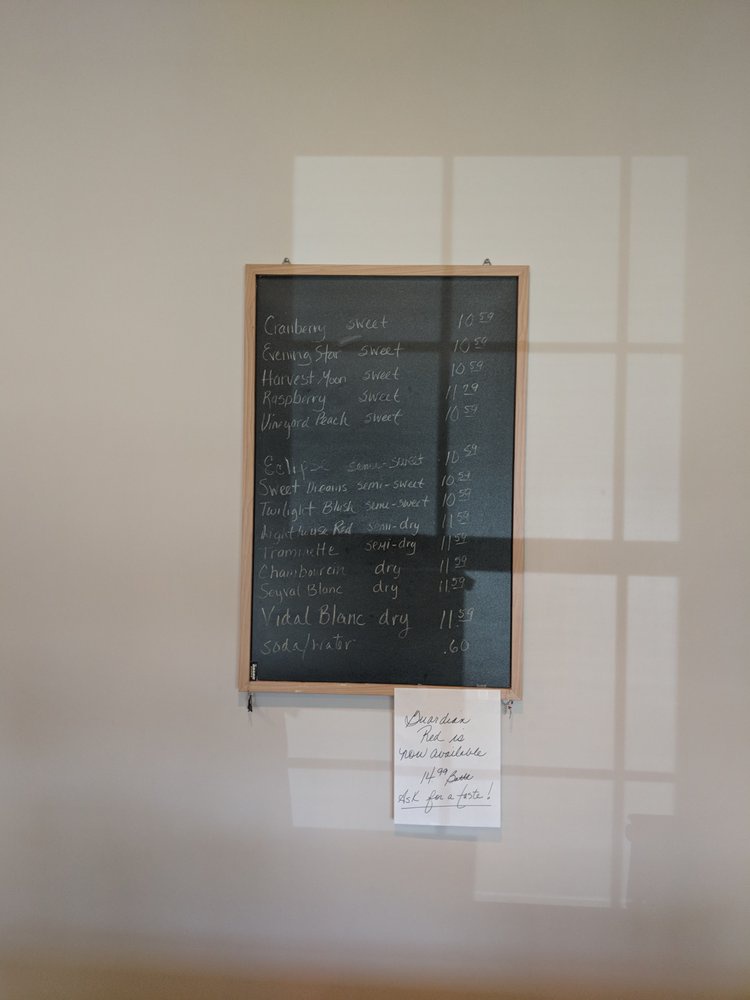 Cranberry sweet 10.59
Evening Star sweet 10.59
Harvest Moon sweet 10.59
Raspberry sweet 11.29
Vineyard Peach sweet 10.59
Eclipse semi-sweet 10.59
Sweet Dreams semi-sweet 10.59
Twilight Blush semi-sweet 10.59
Lighthouse Red semi-dry 11.59
Traminette semi-dry 11.59
Chambourcin dry 11.59
Seyval Blanc dry 11.59
Vidal Blanc dry 11.59
soda/water .60
Guardian
Red is
now available
14.99
Ask for a taste!